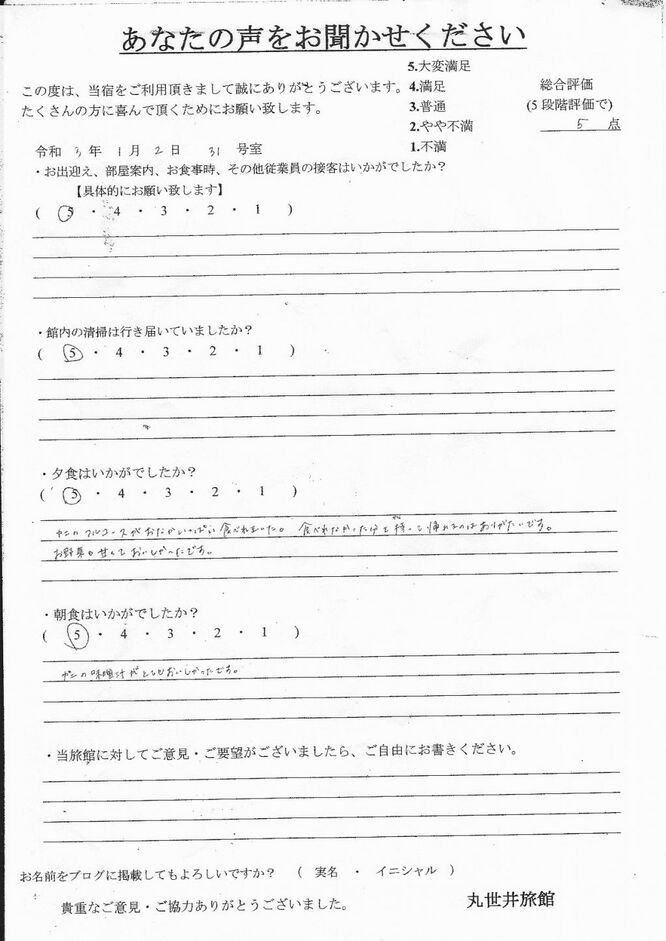 あなたの声をお聞かせください
5.大変満足
この度は、当宿をご利用頂きまして誠にありがとうございます。 4.満足 総合評価
たくさんの方に喜んで頂くためにお願い致します。 3.普通 (5段階評価で)
2.やや不満 5 点
令和 3 年 1 月 2 日 31 号室 1.不満
・お出迎え、部屋案内、お食事時、その他従業員の接客はいかがでしたか?
【具体的にお願い致します】
( 5 ・ 4 ・ 3 ・ 2 ・ 1 )
・館内の清掃は行き届いていましたか?
( 5 ・ 4 ・ 3 ・ 2 ・ 1 )
・夕食はいかがでしたか?
( 5 ・ 4 ・ 3 ・ 2 ・ 1 )
カニのフルコースがおなかいっぱい食べれました。 食べれなかった分を持って帰れるのはありがたいです。
お野菜も甘くておいしかったです。
・朝食はいかがでしたか?
( 5 ・ 4 ・ 3 ・ 2 ・ 1 )
カニの味噌汁がとてもおいしかったです。
・当旅館に対してご意見・ご要望がございましたら、ご自由にお書きください。
お名前をブログに掲載してもよろしいですか? ( 実名 ・ イニシャル )
貴重なご意見・ご協力ありがとうございました。 丸世井旅館